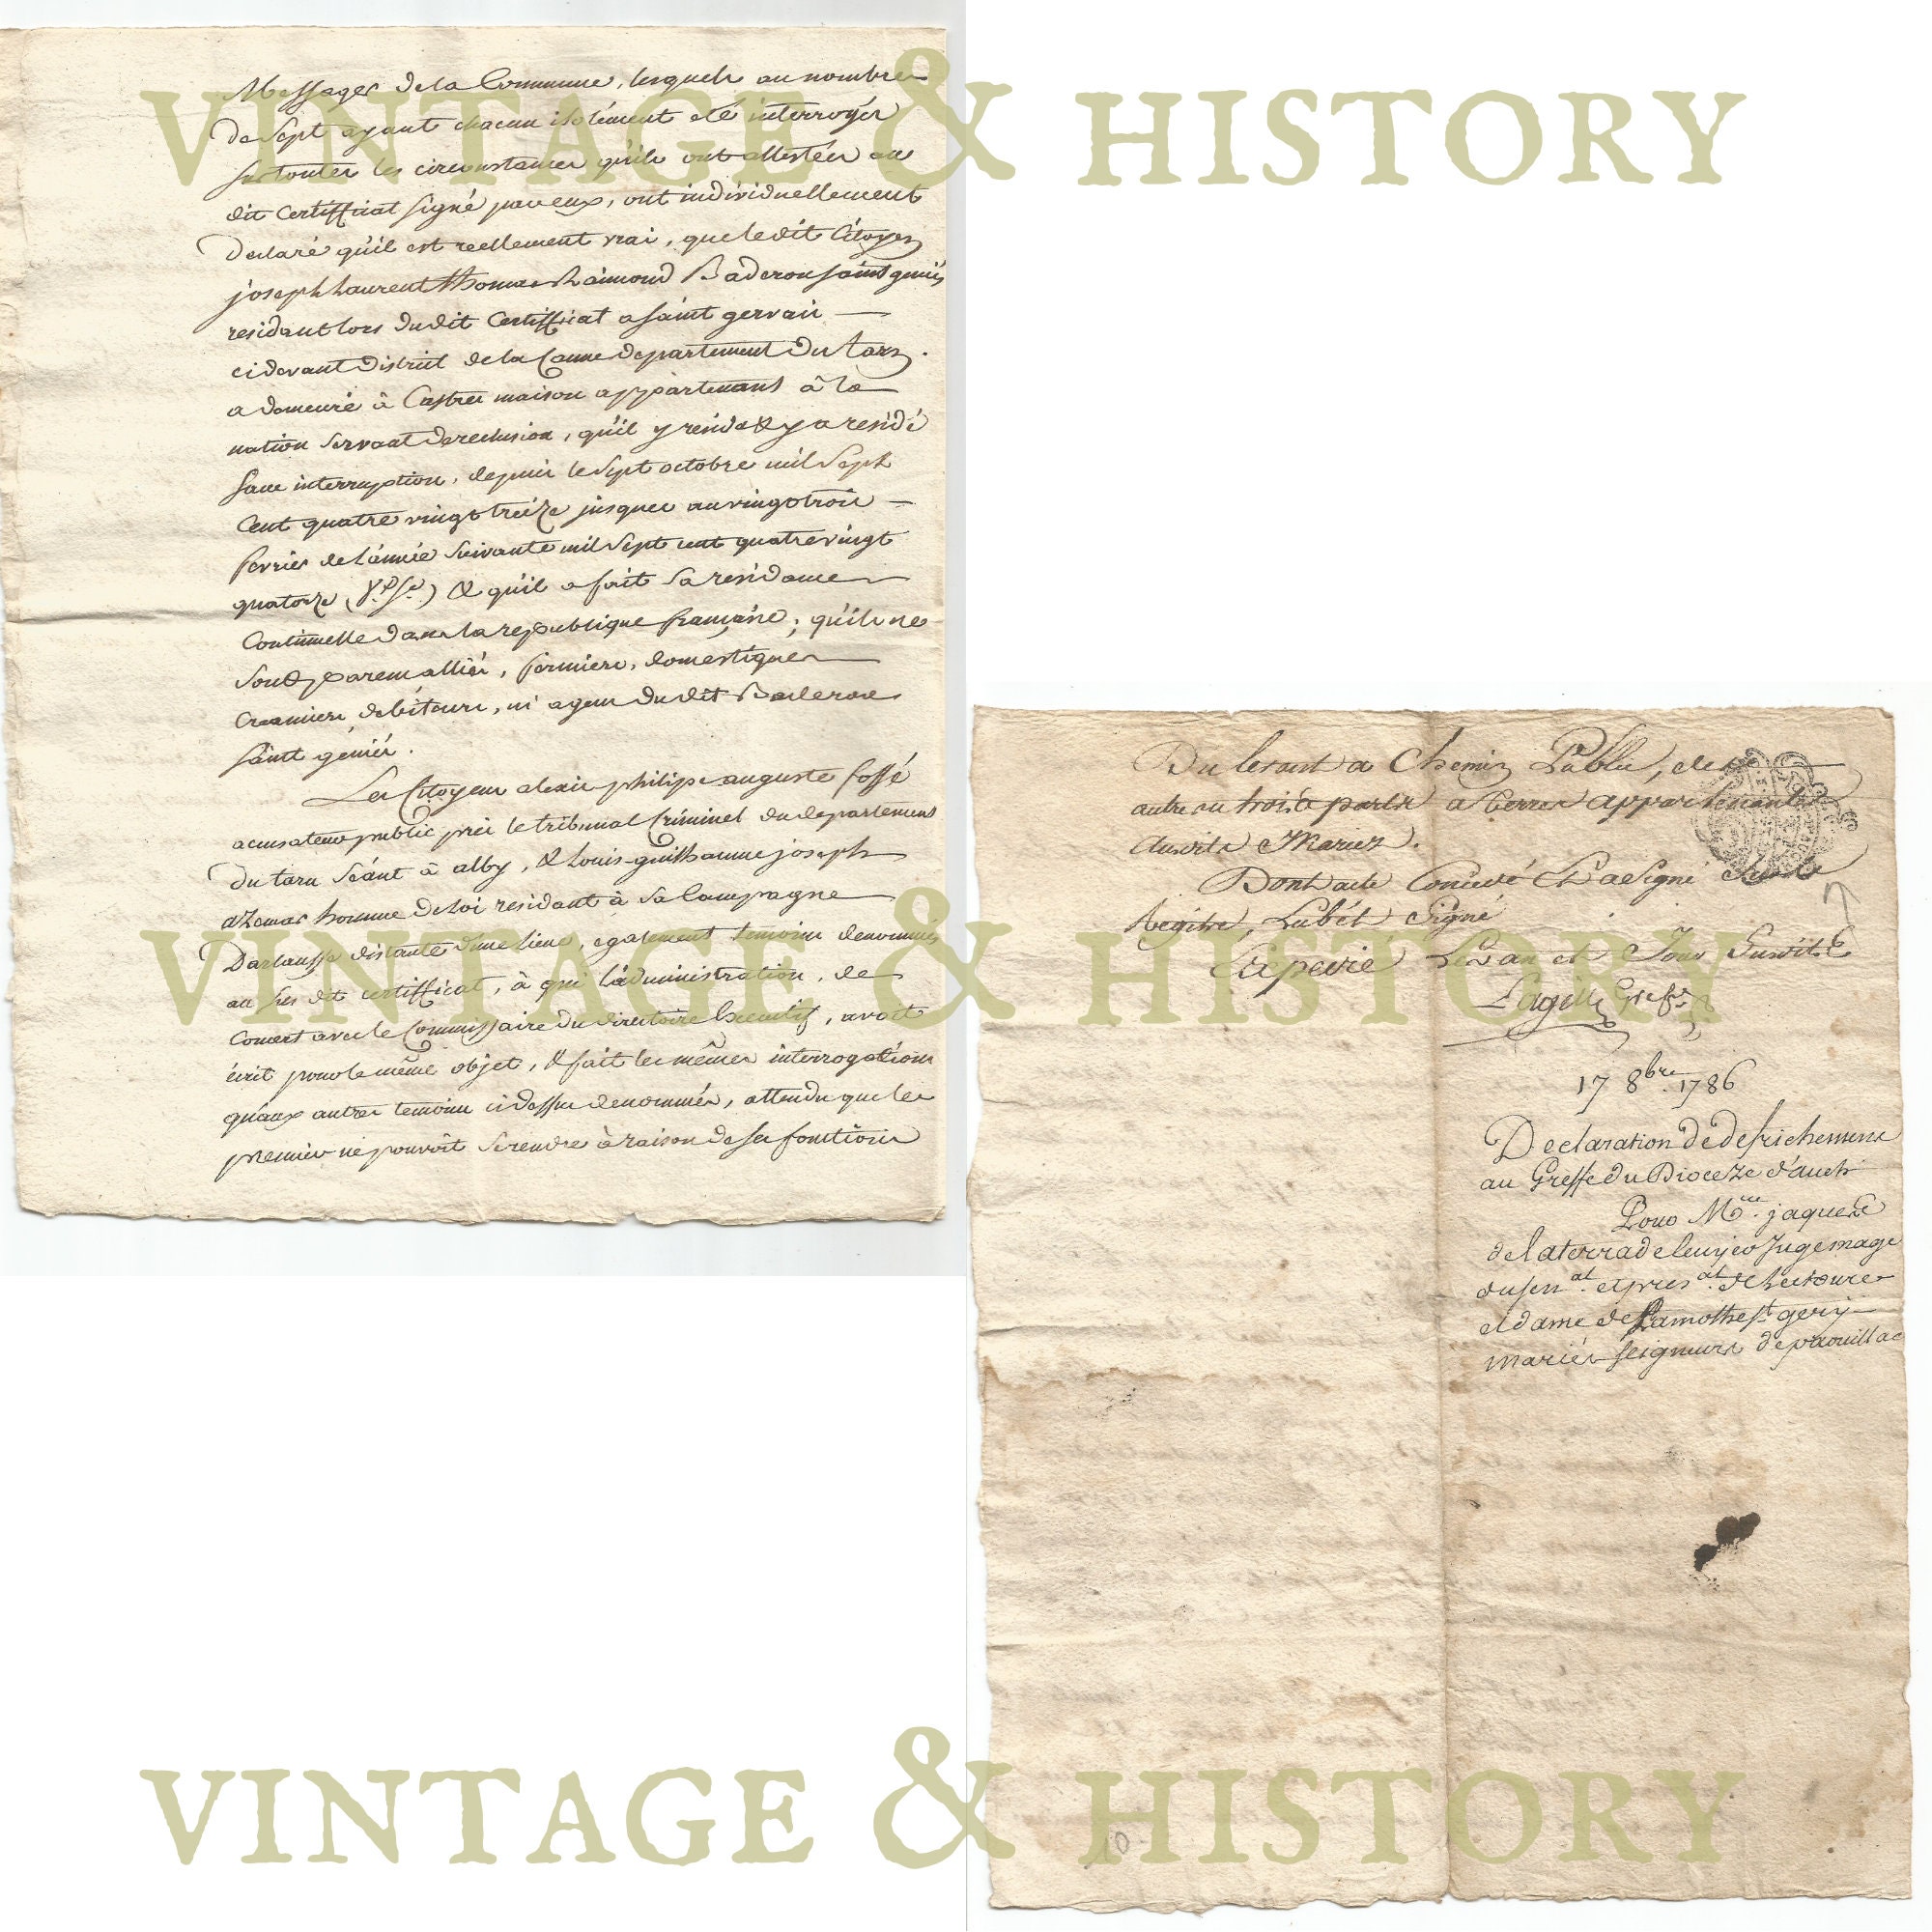 Messages de la Commune, lesquels au nombre
de sept ayant chacun isolément eté interrogés
sur toutes les circonstances qu'ils ont attestées au
dit certifficat signé par eux, ont individuellement
declaré qu'il est reellement vrai, que le dit Citoyen
joseph laurent thomas Raimond Baderon saint geniés
residant lors du dit Certifficat a saint gervais —
cidevant district de la Caune departement du tarn.
a demeuré à Castres maison appartenant à la
nation servant de reclusion, qu'il y reside & y a residé
sans interruption, depuis le sept octobre mil sept
Cent quatre vingt treize jusques au vingt trois —
fevrier de l'année suivante mil sept cent quatre vingt
quatorze & qu'il a fait sa residance
Continuelle dans la republique française; qu'ils ne
sont parens alliés, fermiers, domestiques
Creanciers, debiteurs, ni agens du dit Baderon
saint geniés.
Les Citoyens alexis philipe auguste fossé
acusateur public près le tribunal Criminel du departement
du tarn séant à alby, & louis guilhaume joseph
azemar homme de loi residant à sa Campagne
distante d'une lieue, egalement temoins denommés
au sus dit certifficat, à qui l'administration, de
concert avec le Commissaire du directoire Executif, avoit
écrit pour le même objet, & fait les mêmes interrogations
qu'aux autres temoins cidessus denommés, attendu que le
premier ne pouvoit se rendre à raison de ses fonctions
Du levant a Chemin Public, de
autre ou trois parts a terres appartenantes
Auxdits Mariez.
Dont acte Concédé Et a Signé
Registre, Lubét Signé
Lan et Jour Susdits
Lagelle Greff.
17 8bre. 1786
Declaration de defrichement
au Greffe du Dioceze d'auch
Pour Mre. jaques
de laterrade leuyeo Juge mage
du sen.al et pres.al de Lectoure
et dame de Lamothe st. gery
mariés seigneurs de paouillac
10
VINTAGE & HISTORY
VINTAGE & HISTORY
VINTAGE & HISTORY